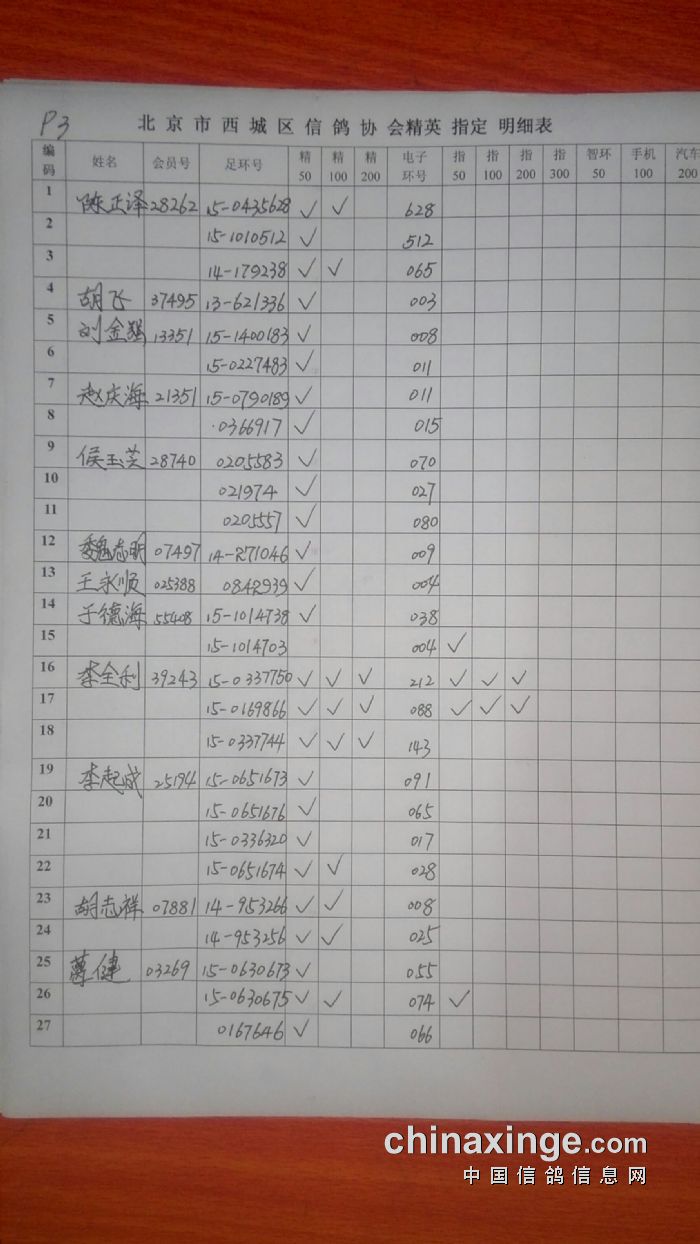 P3
北京市西城区信鸽协会精英 指定 明细表
编码 姓名 会员号 足环号 精50 精100 精200 电子环号 指50 指100 指200 指300 智环50 手机100 汽车200
1 陈正泽 28262 15-0435628 ✓ ✓ 628
2 15-1010512 ✓ 512
3 14-179238 ✓ ✓ 065
4 胡飞 37495 13-621336 ✓ 003
5 刘金强 13351 15-1400183 ✓ 008
6 15-0227483 ✓ 011
7 赵庆海 21351 15-0790189 ✓ 011
8 0366917 ✓ 015
9 侯玉芙 28740 0205583 ✓ 070
10 021974 ✓ 027
11 0205557 ✓ 080
12 魏志明 07497 ✓ 009
13 王永顺 025388 ✓ 004
14 于德海 55408 15-1014738 ✓ 038
15 15-1014703 004 ✓
16 李全利 39243 15-0337750 ✓ ✓ ✓ 212 ✓ ✓ ✓
17 15-0169866 ✓ ✓ ✓ 088 ✓ ✓ ✓
18 15-0337744 ✓ ✓ ✓ 143
19 李起成 25194 15-0651673 ✓ 091
20 15-0651676 ✓ 065
21 15-0336320 ✓ 017
22 15-0651674 ✓ ✓ 028
23 胡志祥 07881 14-953266 ✓ ✓ 008
24 14-953256 ✓ ✓ 025
25 健 03269 15-0630673 ✓ 055
26 15-0630675 ✓ ✓ 074 ✓
27 0167646 ✓ 066
chinaxinge.com
中国信鸽信息网